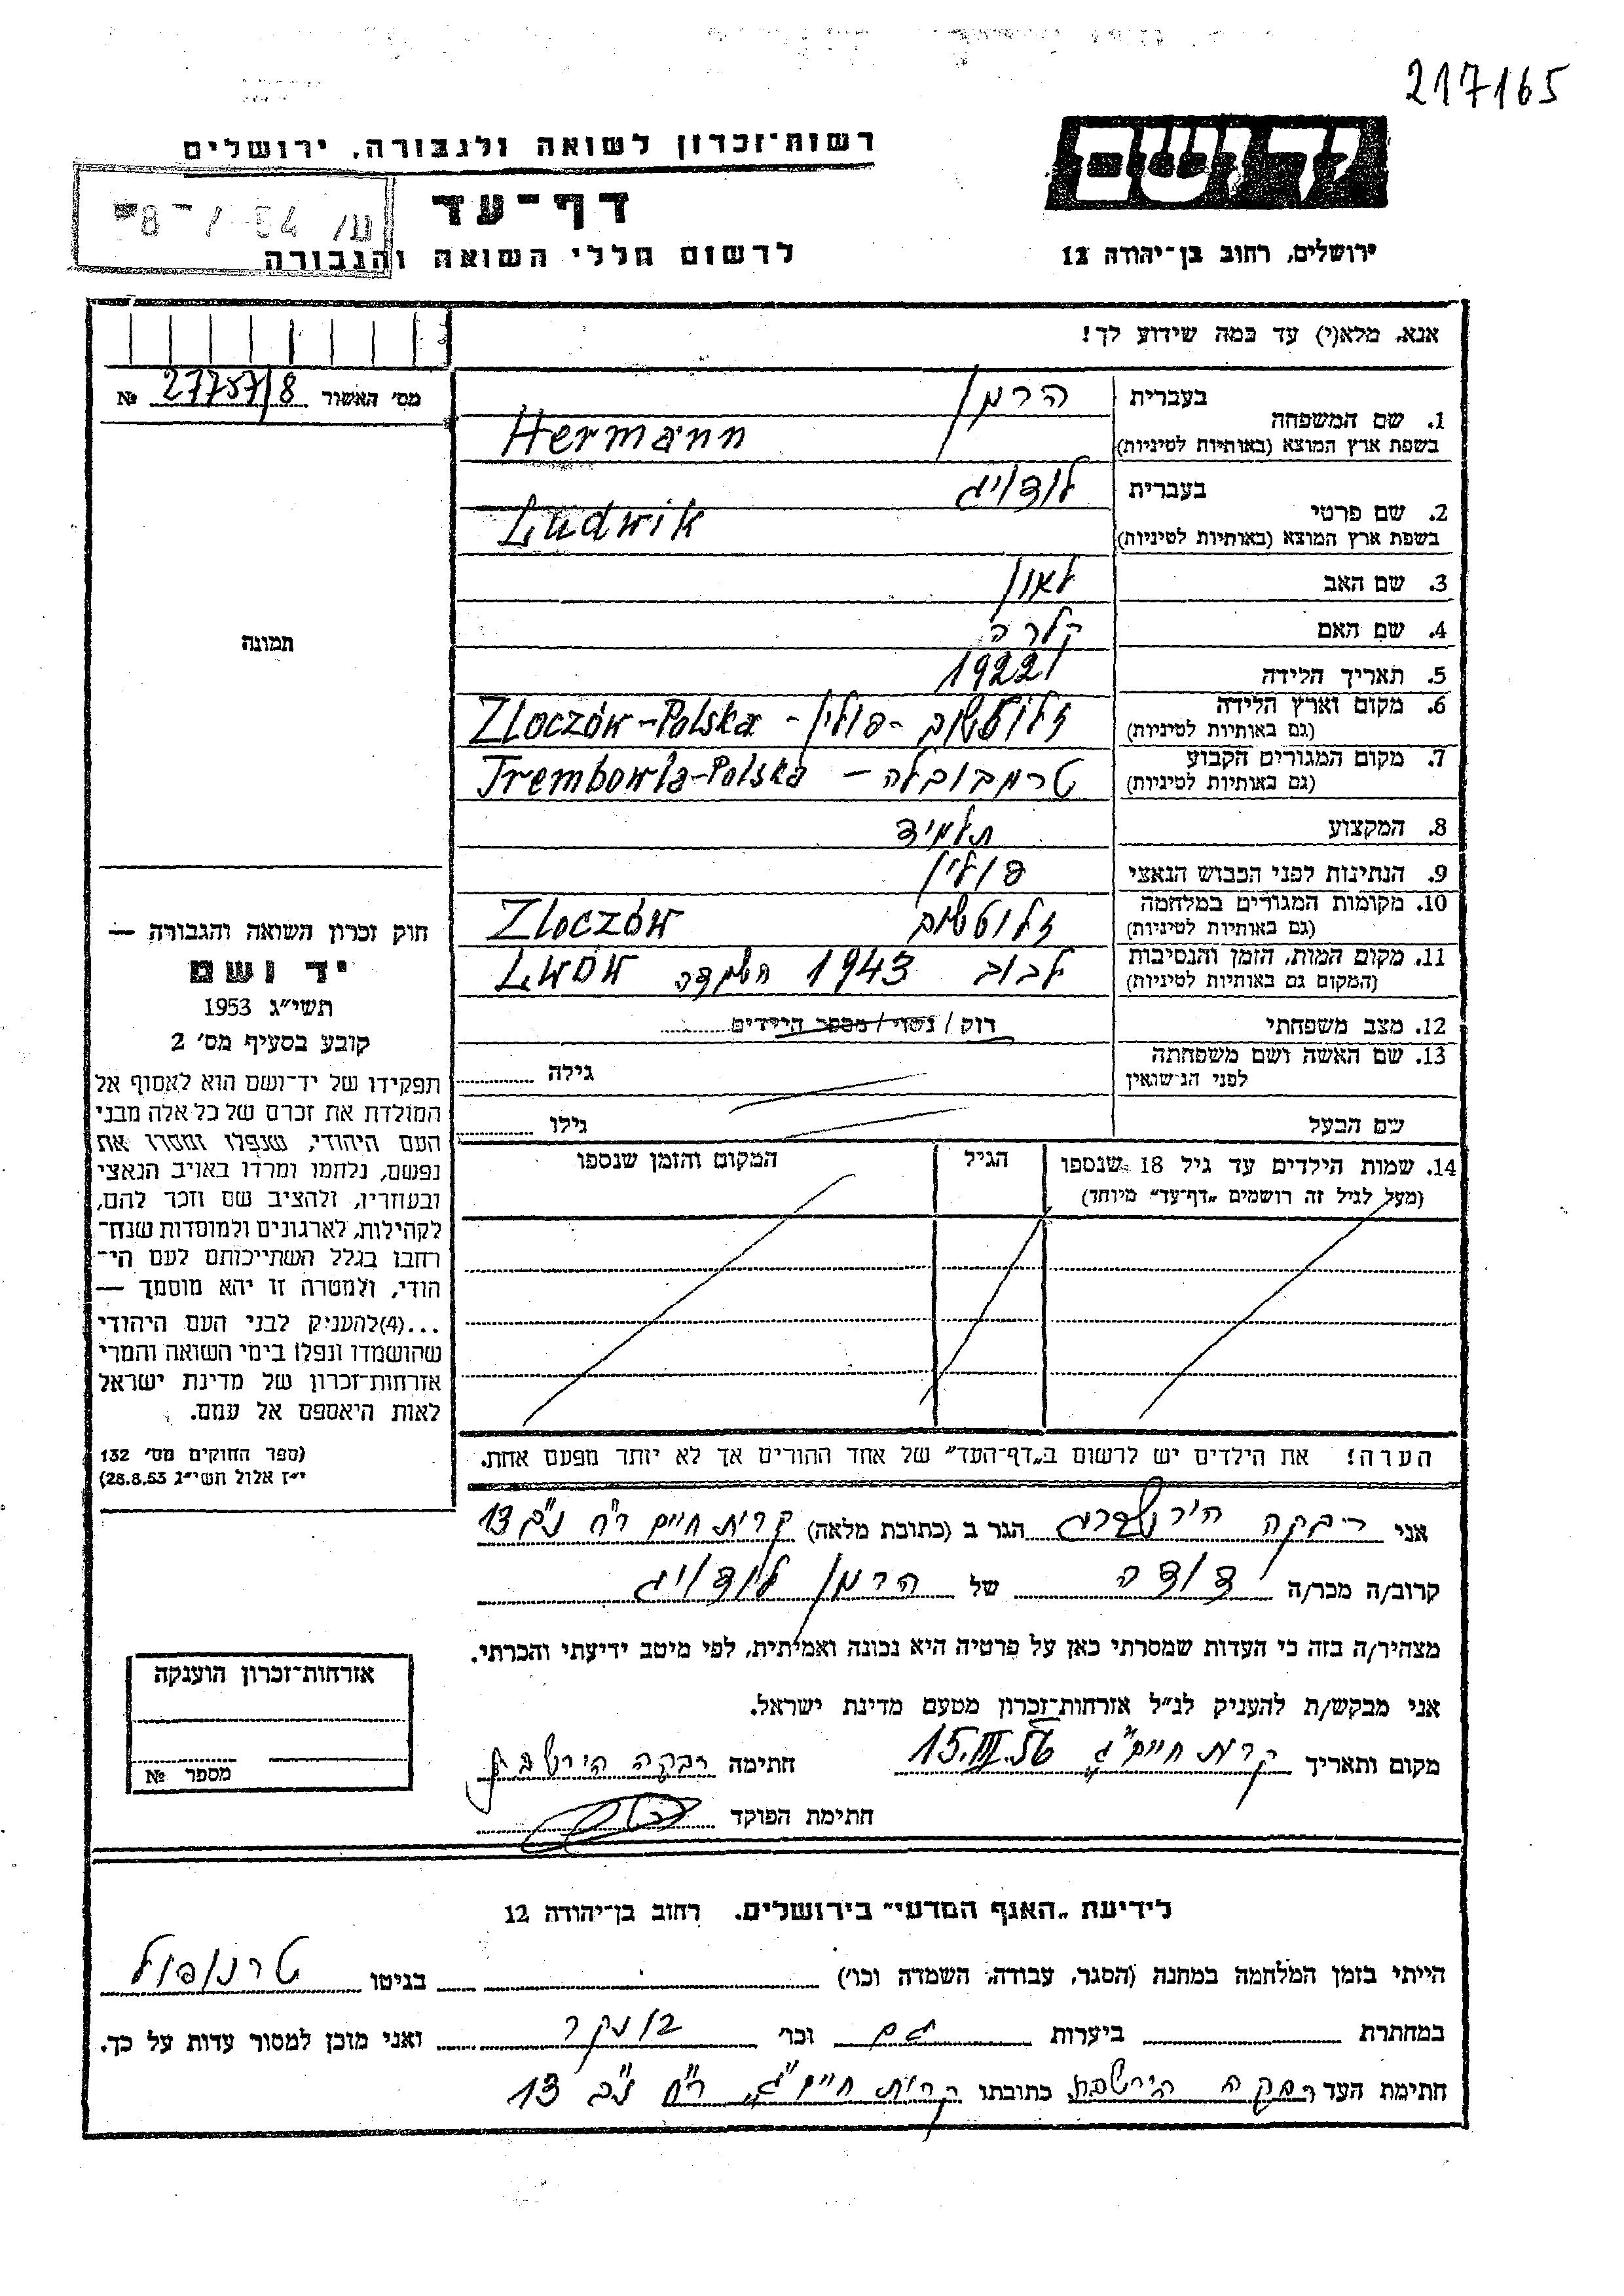 217165
יד ושם
ירושלים, רחוב בן־יהודה 12
רשות־זכרון לשואה ולגבורה, ירושלים
דף־עד
לרשום חללי השואה והגבורה
אנא, מלא(י) עד כמה שידוע לך!
מס׳ האשור 27757/8 №
1. שם המשפחה
בעברית הרמן
בשפת ארץ המוצא (באותיות לטיניות) Hermann
2. שם פרטי
בעברית לודויג
בשפת ארץ המוצא (באותיות לטיניות) Ludwik
3. שם האב לאון
4. שם האם קלרה
5. תאריך הלידה 1922
6. מקום וארץ הלידה זלוטשוב - פולין - Zloczów-Polska
(גם באותיות לטיניות)
7. מקום המגורים הקבוע טרמבובלה - Trembowla-Polska
(גם באותיות לטיניות)
8. המקצוע תלמיד
9. הנתינות לפני הכבוש הנאצי פולין
10. מקומות המגורים במלחמה זלוטשוב Zloczów
(גם באותיות לטיניות)
11. מקום המות, הזמן והנסיבות לבוב 1943 השמדה Lwów
(המקום גם באותיות לטיניות)
12. מצב משפחתי רוק / נשוי / מספר הילדים
13. שם האשה ושם משפחתה
לפני הנישואין גילה
שם הבעל גילו
14. שמות הילדים עד גיל 18 שנספו הגיל המקום והזמן שנספו
(מעל לגיל זה רושמים „דף־עד” מיוחד)
הערה! את הילדים יש לרשום ב„דף־העד” של אחד ההורים אך לא יותר מפעם אחת.
תמונה
חוק זכרון השואה והגבורה —
יד ושם
תשי״ג 1953
קובע בסעיף מס׳ 2
תפקידו של יד־ושם הוא לאסוף אל
המולדת את זכרם של כל אלה מבני
העם היהודי, שנפלו ומסרו את
נפשם, נלחמו ומרדו באויב הנאצי
ובעוזריו, ולהציב שם וזכר להם,
לקהילות, לארגונים ולמוסדות שנח־
רחבו בגלל השתייכותם לעם הי־
הודי, ולמטרה זו יהא מוסמך —
...(4)להעניק לבני העם היהודי
שהושמדו ונפלו בימי השואה והמרי
אזרחות־זכרון של מדינת ישראל
לאות היאספם אל עמם.
(ספר החוקים מס׳ 132
י״ז אלול תשי״ג 28.8.53)
אני רבקה הגר ב (כתובת מלאה) קרית חיים רח נ״ב 13
קרוב/ה מכר/ה דודה של הרמן לודויג
מצהיר/ה בזה כי העדות שמסרתי כאן על פרטיה היא נכונה ואמיתית, לפי מיטב ידיעתי והכרתי.
אני מבקש/ת להעניק לנ״ל אזרחות־זכרון מטעם מדינת ישראל.
מקום ותאריך קרית חיים ג״ 15.III.56 חתימה רבקה
חתימת הפוקד
אזרחות־זכרון הוענקה
מספר №
לידיעת „האגף המדעי” בירושלים. רחוב בן־יהודה 12
הייתי בזמן המלחמה במחנה (הסגר, עבודה, השמדה וכו׳) בגיטו טרנופול
במחתרת ביערות גם וכו׳ בונקר ואני מוכן למסור עדות על כך.
חתימת העד רבקה כתובתו קרית חיים ג״ רח נ״ב 13